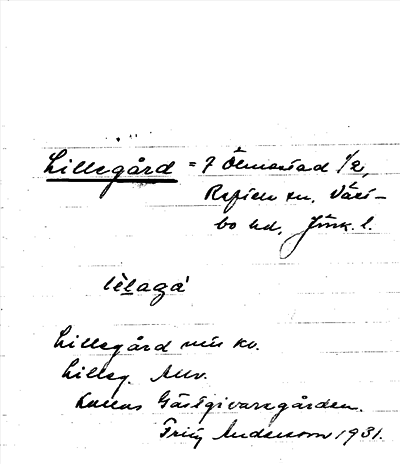 Lillegård = 7 Ölmestad 1/2,
Reftele sn, Väst-
bo hd, Jönk. l.
lìlagá
Lillegård min kv.
Lilleg. Auv.
kallas Gästgivaregården.
Fritz Andersson 1931.